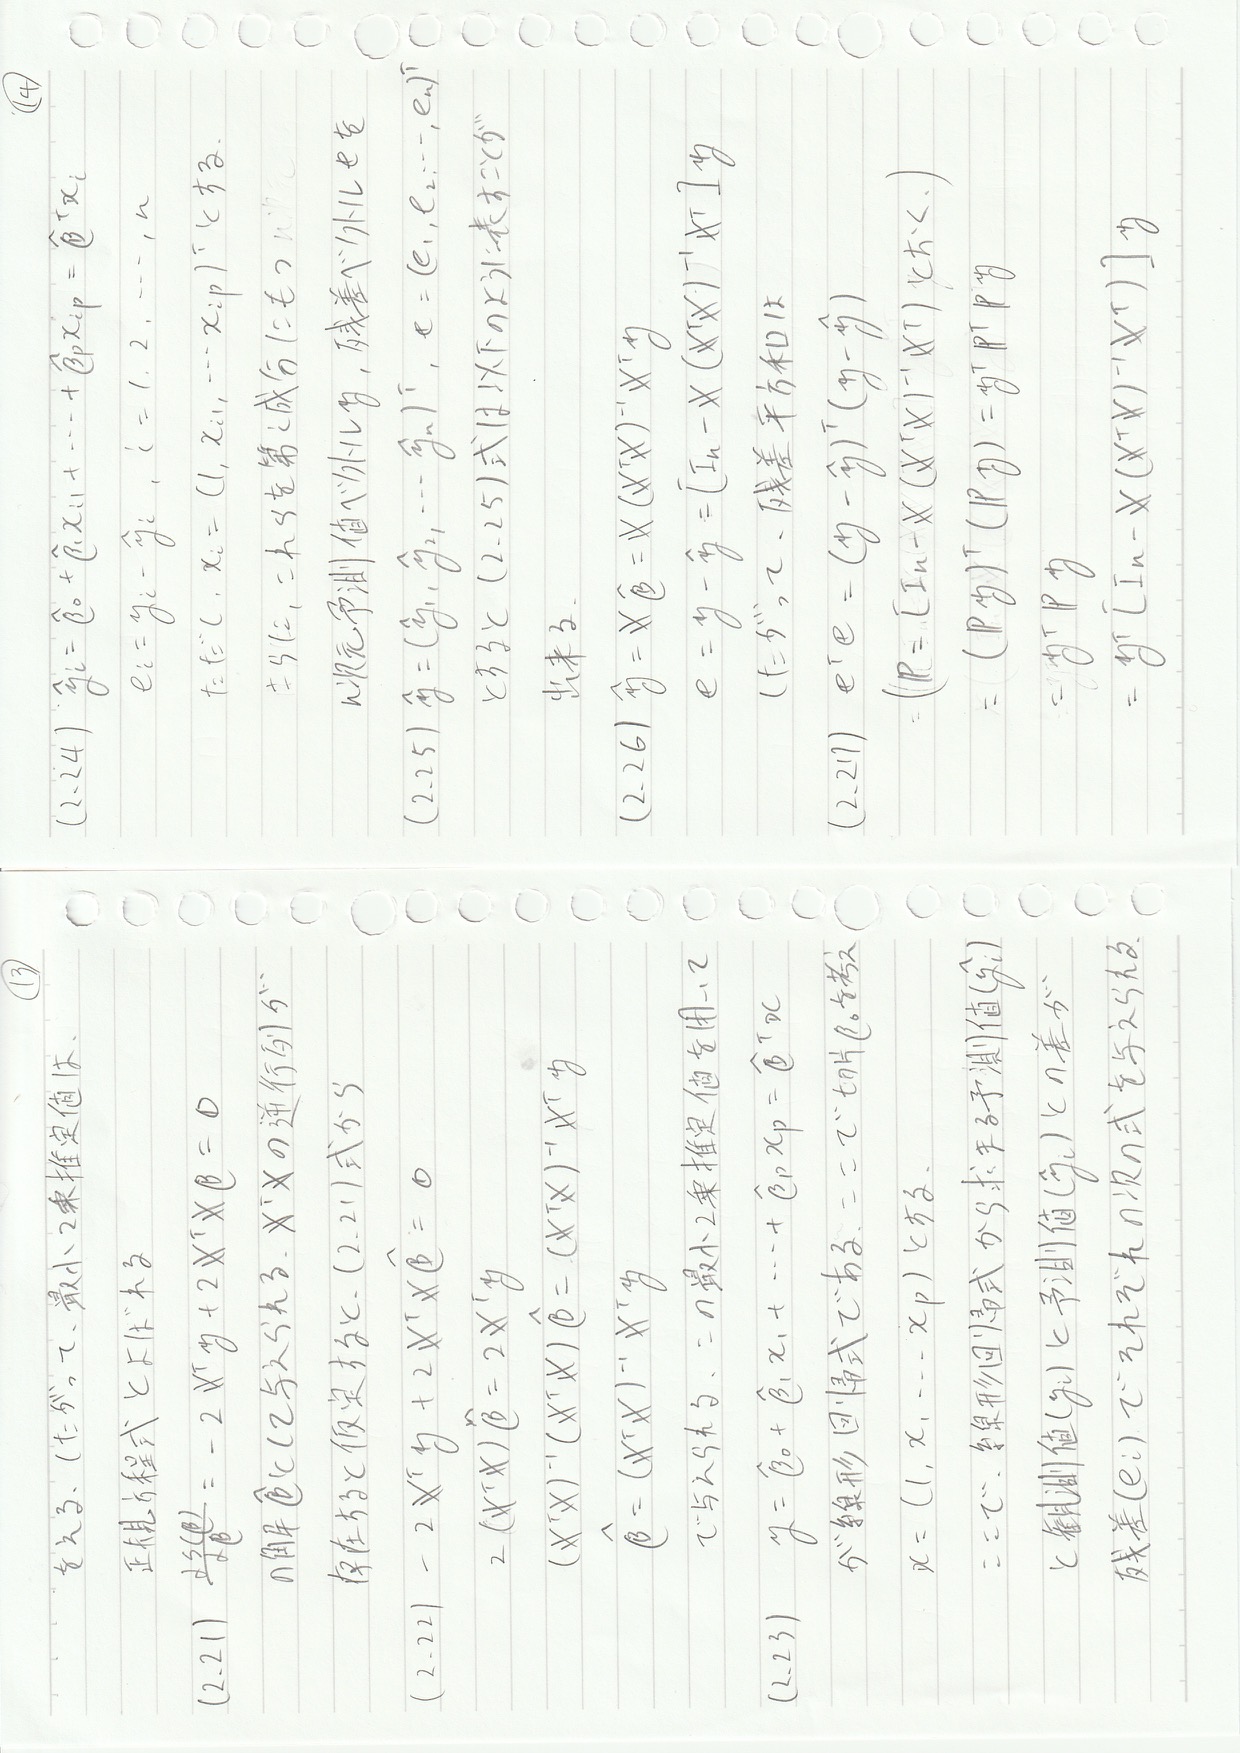 ⑬
をえる。したがって、最小2乗推定値は、
正規方程式とよばれる
(2.21) ∂S(β)/∂β = -2X^T y + 2X^T Xβ = 0
の解 β̂として与えられる。X^T Xの逆行列が
存在すると仮定すると、(2.21)式から
(2.22) -2X^T y + 2X^T Xβ̂ = 0
2(X^T X)β̂ = 2X^T y
(X^T X)^-1 (X^T X)β̂ = (X^T X)^-1 X^T y
β̂ = (X^T X)^-1 X^T y
で与えられる。この最小2乗推定値を用いて
(2.23) y = β̂0 + β̂1x1 + ‥‥ + β̂pxp = β̂^T x
が線形回帰式である。ここで切片β0を考え
x = (1, x1 ‥‥ xp)とする。
ここで、線形回帰式から求まる予測値(ŷi)
と観測値(yi)と予測値(ŷi)との差が
残差(ei)でそれぞれの次の式を与えられる。
⑭
(2.24) ŷi = β̂0 + β̂1xi1 + ‥‥ + β̂pxip = β̂^T xi
ei = yi - ŷi , i = 1. 2. ‥‥, n
ただし、xi = (1, xi1, ‥‥ xip)^T とする。
さらに, これらを第i成分にもつ
n次元予測値ベクトルy, 残差ベクトルeを
(2.25) ŷ = (ŷ1, ŷ2, ‥‥ ŷn)^T , e = (e1, e2, ‥‥, en)^T
とすると (2.25)式は以下のように表すことが
出来る。
(2.26) ŷ = Xβ̂ = X(X^T X)^-1 X^T y
e = y - ŷ = [In - X(X^T X)^-1 X^T] y
したがって、残差平方和は
(2.27) e^T e = (y - ŷ)^T (y - ŷ)
= (P = [In - X(X^T X)^-1 X^T) とおく。)
= (Py)^T (Py) = y^T P^T P y
= y^T P y
= y^T [In - X(X^T X)^-1 X^T)] y